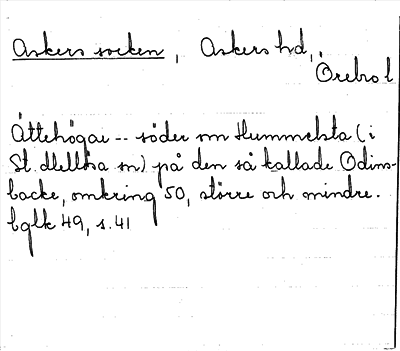 Askers socken, Askers hd,
Örebro l
Ättehögar -- söder om Hummelsta (i
St. Mellösa sn) på den så kallade Odins-
backe, omkring 50, större och mindre.
bglk 49, s. 41